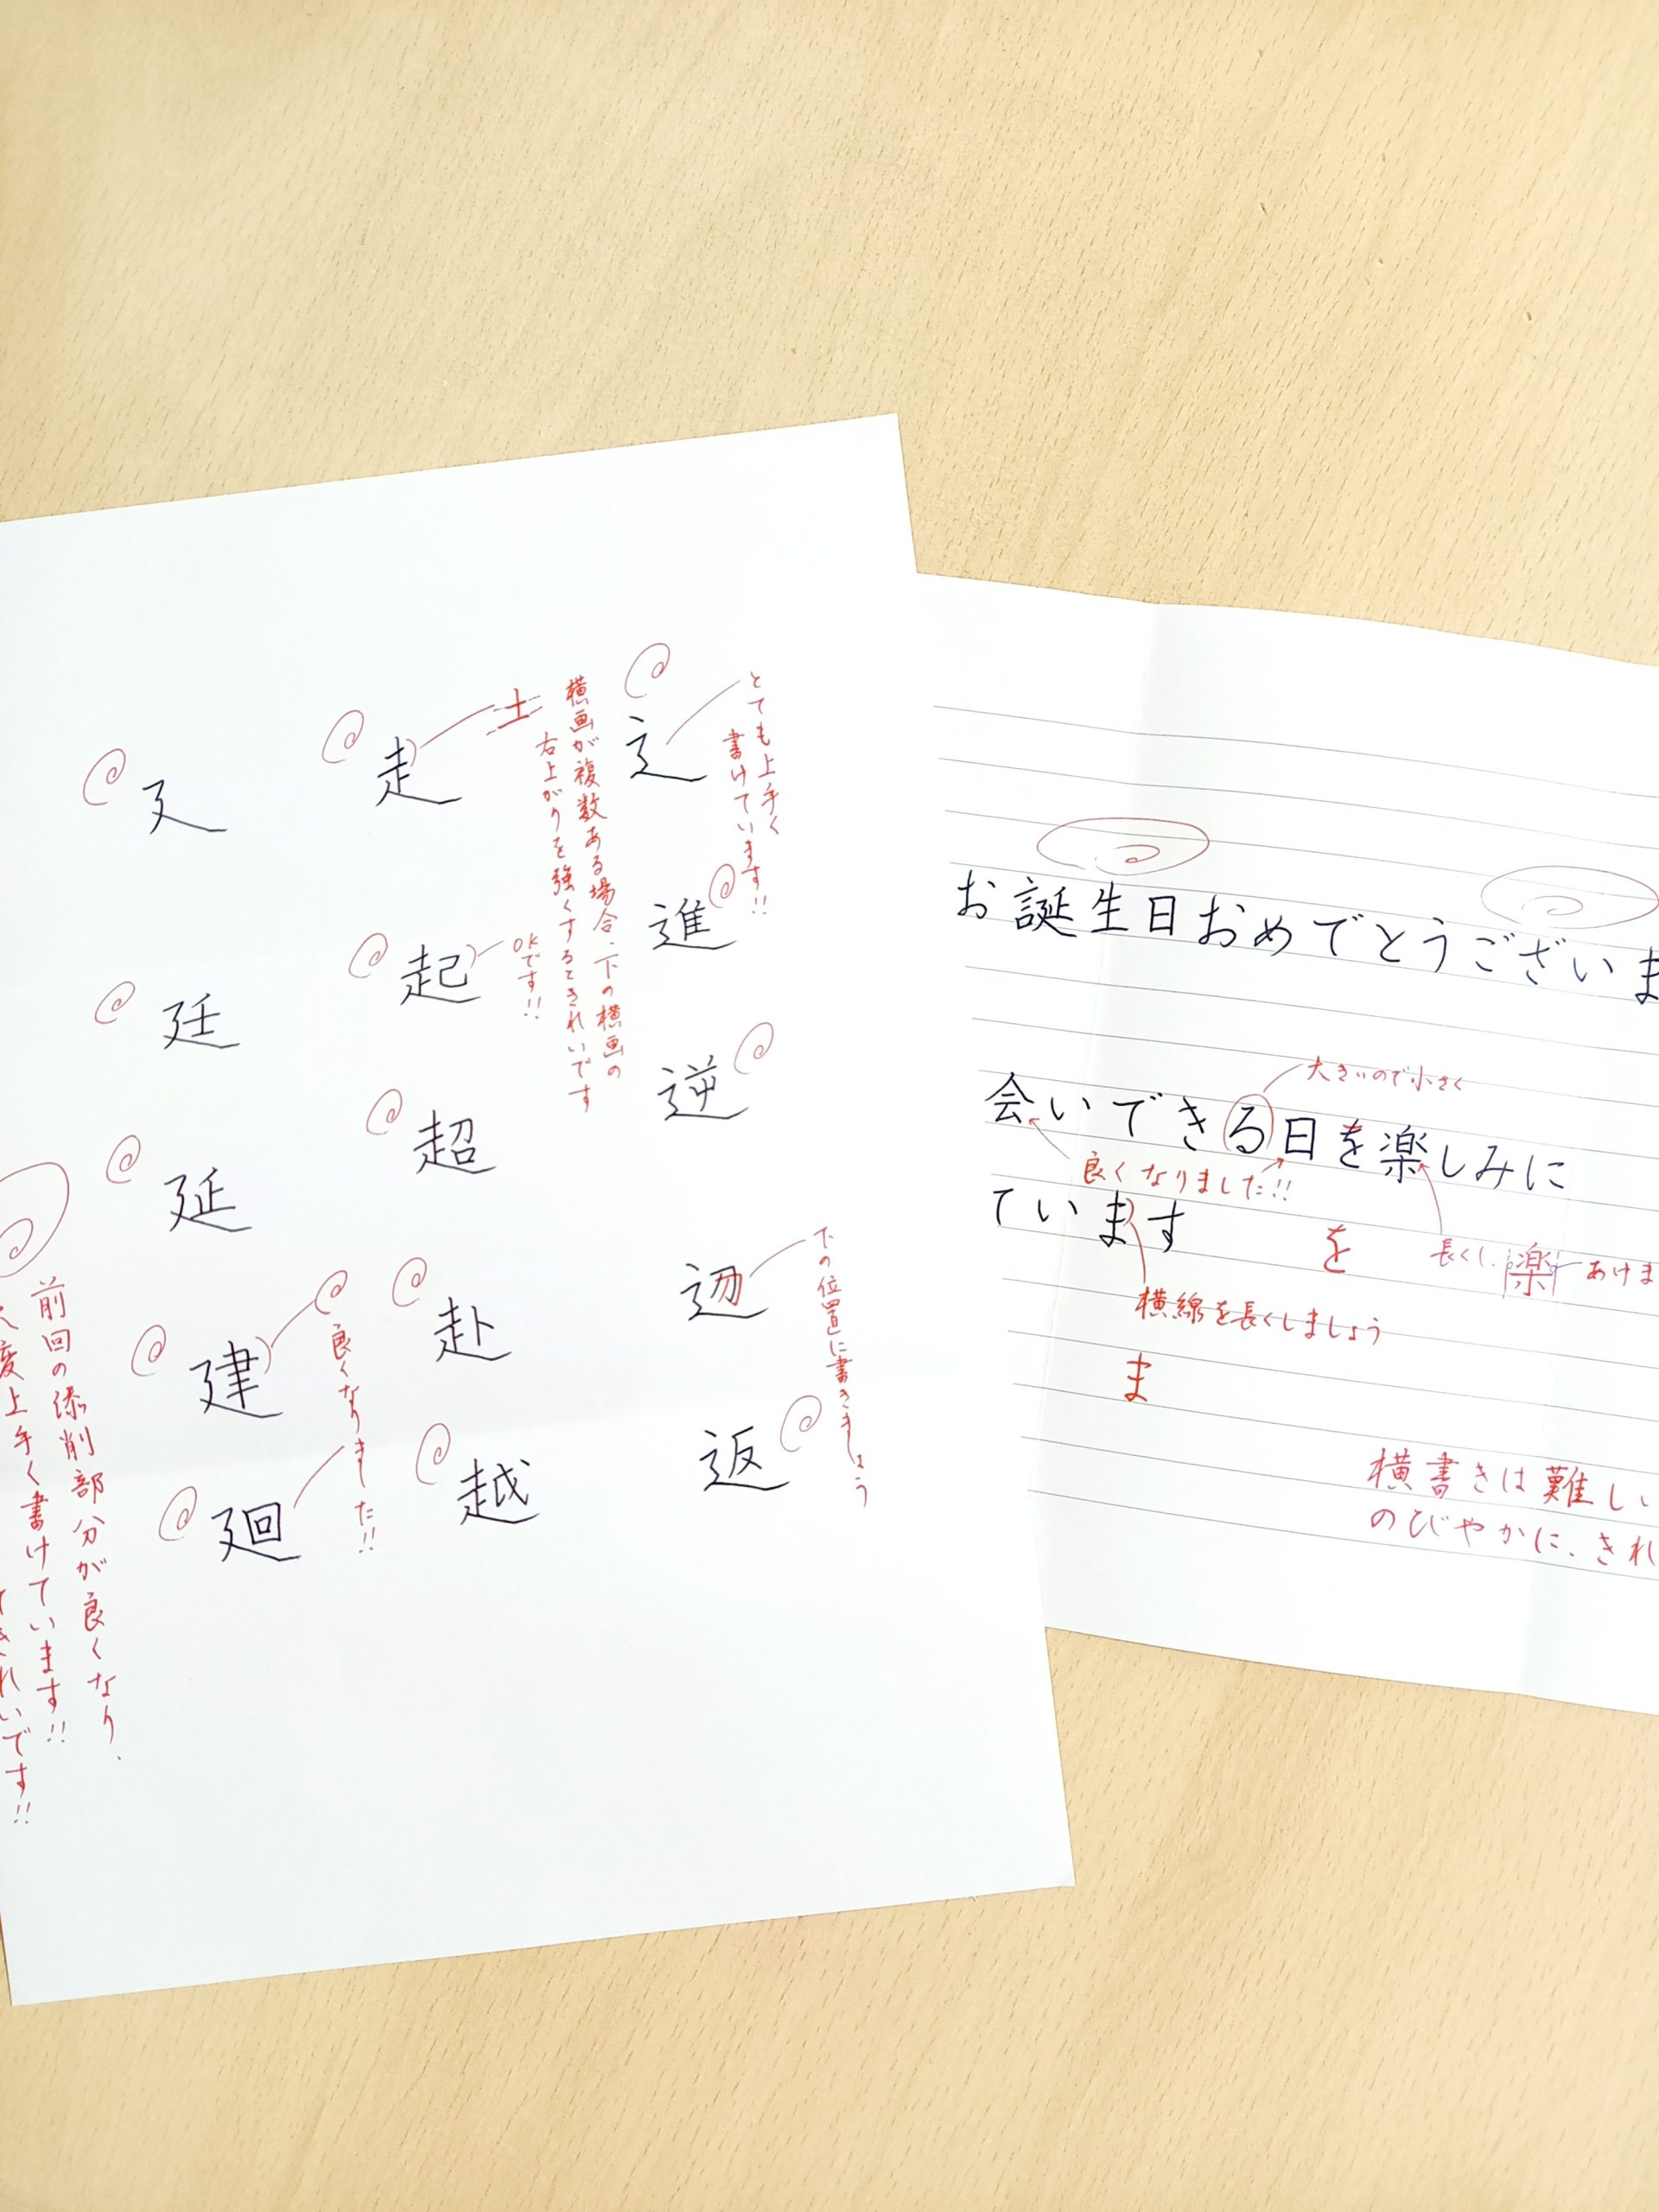 とても上手く
書けています!!
⻌
進
逆
辺
返
下の位置に書きましょう
横画が複数ある場合、下の横画の
右上がりを強くするときれいです
土
走
起
OKです!!
超
赴
越
廴
廷
延
建
廻
良くなりました!!
前回の添削部分が良くなり、
度上手く書けています!!
きれいです!!
お誕生日おめでとうございま
大きいので小さく
会いできる日を楽しみに
良くなりました!!
ています
を
長くし、楽 あけま
横線を長くしましょう
ま
横書きは難しい
のびやかに、きれ